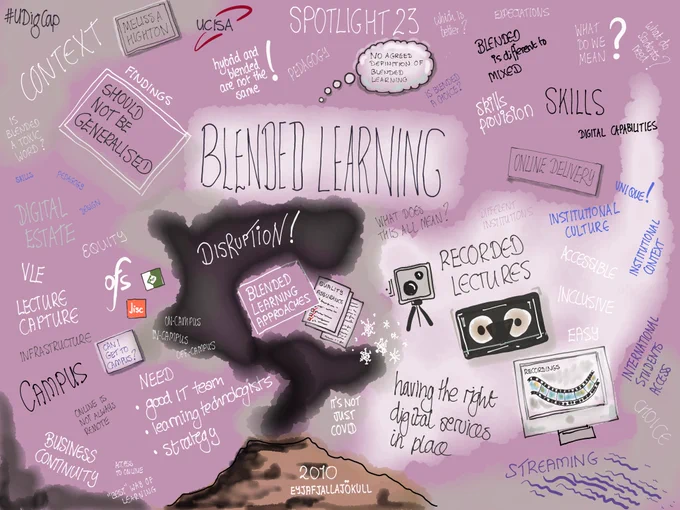 #UDigCap
MELISSA
HIGHTON
UCISA
SPOTLIGHT 23
which is
better?
EXPECTATIONS
CONTEXT
hybrid and
blended
are not the
same
!
PEDAGOGY
NO AGREED
DEFINITION OF
BLENDED
LEARNING
BLENDED
is different to
MIXED
WHAT
DO WE
MEAN
?
FINDINGS
SHOULD
NOT BE
GENERALISED
IS BLENDED
A CHOICE?
skills
provision
SKILLS
DIGITAL CAPABILITIES
IS
BLENDED
A TOXIC
WORD?
BLENDED LEARNING
ONLINE DELIVERY
UNIQUE!
SKILLS
PEDAGOGY
DESIGN
DIGITAL
ESTATE
EQUITY
DISRUPTION!
WHAT DOES
THIS ALL MEAN?
DIFFERENT
INSTITUTIONS
INSTITUTIONAL
CULTURE
INSTITUTIONAL
CONTEXT
VLE
LECTURE
CAPTURE
ofs
Jisc
BLENDED
LEARNING
APPROACHES
QUALITY
ASSURANCE
RECORDED
LECTURES
ACCESSIBLE
INCLUSIVE
EASY
INFRASTRUCTURE
CAN I
GET TO
CAMPUS?
ON-CAMPUS
BY-CAMPUS
OFF-CAMPUS
INTERNATIONAL
STUDENTS
ACCESS
CAMPUS
NEED
• good IT team
• learning technologists
• strategy
ONLINE IS
NOT ALWAYS
REMOTE
IT'S NOT
JUST
COVID
having the right
digital services
in place
RECORDINGS
CHOICE
BUSINESS
CONTINUITY
"BEST" WAY OF
LEARNING
2010
EYJAFJALLAJÖKULL
STREAMING